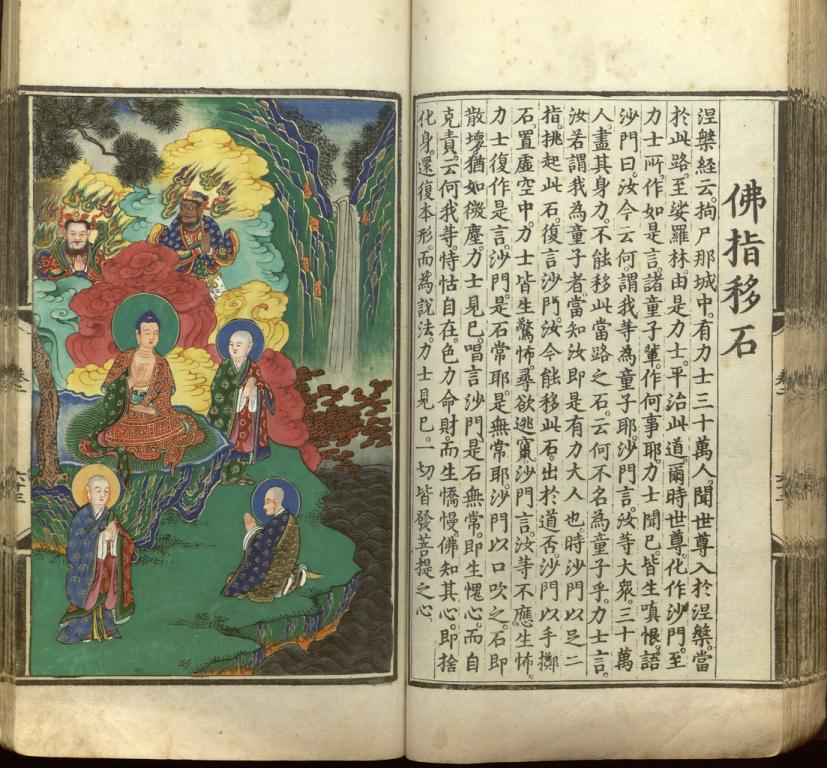 佛指移石
涅槃經云。拘尸那城中。有力士三十萬人。聞世尊入於涅槃。當
於此路。至娑羅林。由是力士。平治此道。爾時世尊。化作沙門。至
力士所。作如是言。諸童子輩。作何事耶。力士聞已。皆生嗔恨。語
沙門曰。汝今云何。謂我等為童子耶。沙門言。汝等大衆。三十萬
人。盡其身力。不能移此當路之石。云何不名為童子乎。力士言。
汝若謂我為童子者。當知汝即是有力大人也。時沙門以足二
指。挑起此石。復言沙門。汝今能移此石。出於道否。沙門以手擲
石。置虛空中。力士皆生驚怖。尋欲逃竄。沙門言。汝等不應生怖。
力士復作是言。沙門。是石常耶。是無常耶。沙門以口吹之。石即
散壞。猶如微塵。力士見已。唱言沙門。是石無常。即生愧心。而自
克責。云何我等。恃怙自在。色力命財。而生憍慢。佛知其心。即捨
化身。還復本形。而為說法。力士見已。一切皆發菩提之心。